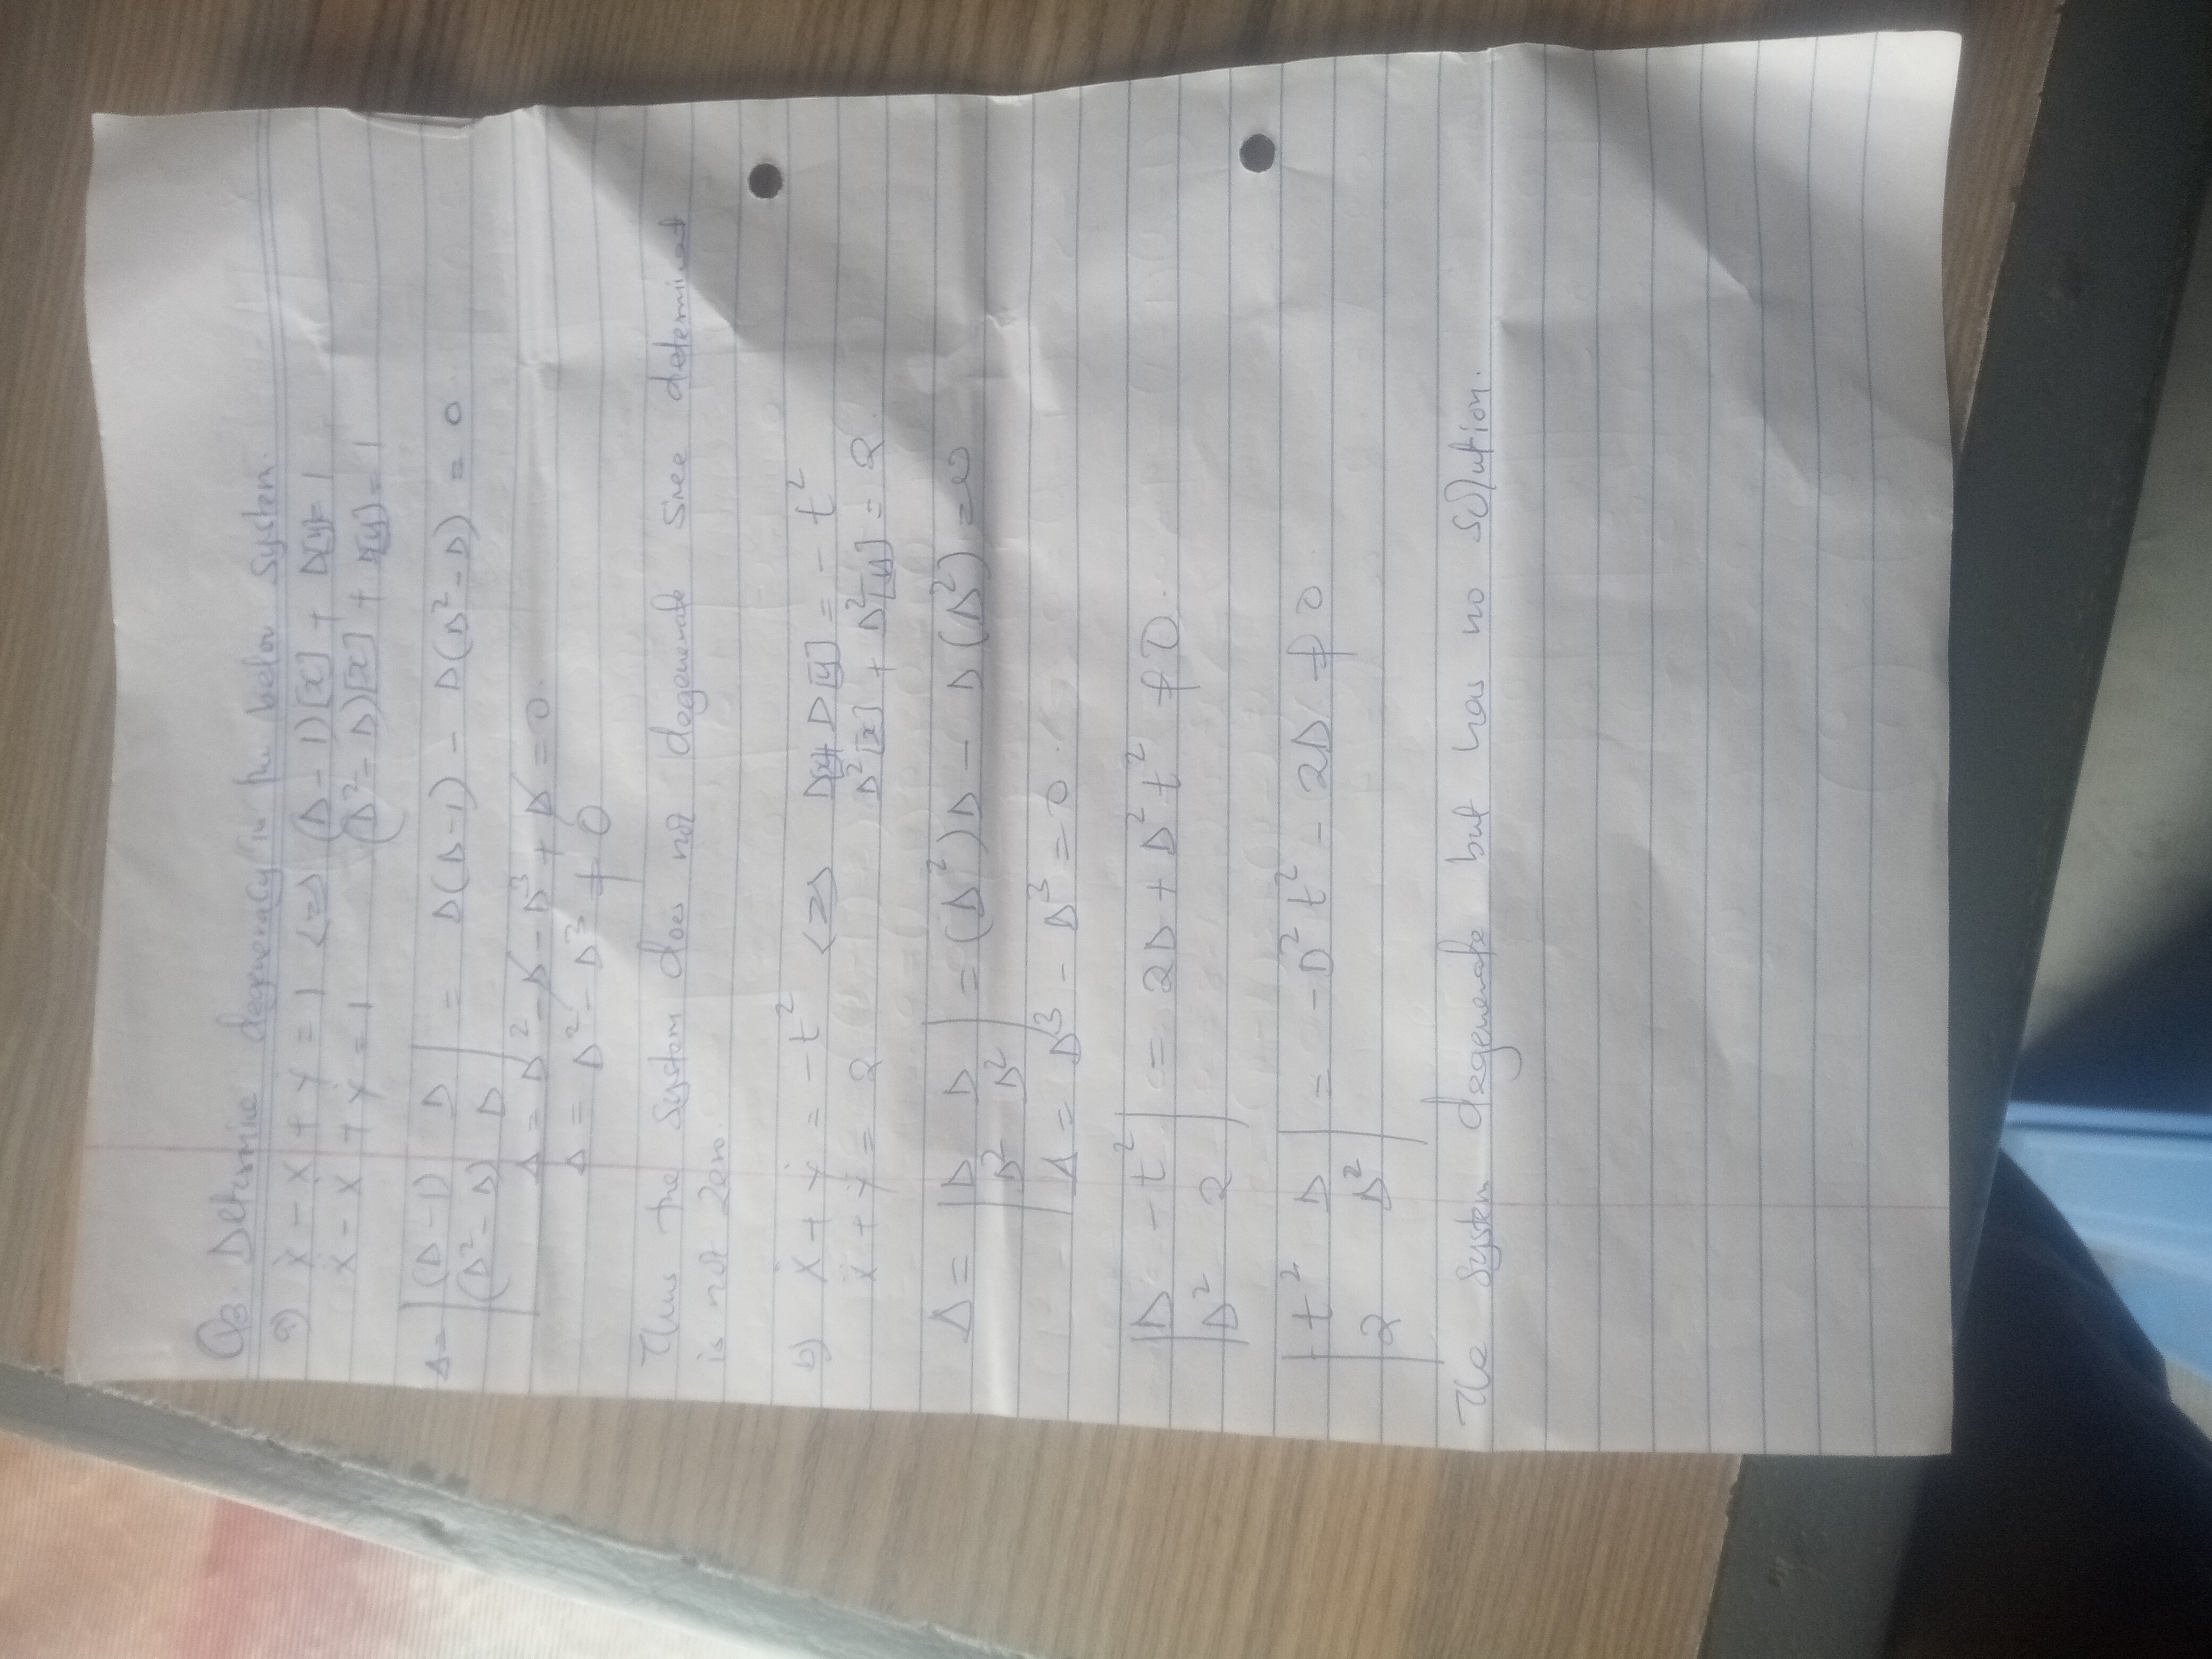 Q3. Determine degeneracy in the below system.
a) ẋ - x + ẏ = 1 <=> (D - 1)[x] + D[y] = 1
ẍ - ẋ + ẏ = 1 (D² - D)[x] + D[y] = 1
Δ = |(D - 1) D| = D(D - 1) - D(D² - D) = 0
|(D² - D) D|
Δ = D² - D - D³ + D = 0.
Δ = D² - D³ ≠ 0
Thus the system does not degenerate since determinant
is not zero.
b) ẋ + ẏ = -t² <=> D[x] + D[y] = -t²
ẍ + ÿ = 2 D²[x] + D²[y] = 2.
Δ = |D D| = (D²)D - D(D²) = 0
|D² D²|
Δ = D³ - D³ = 0.
|D -t²| = 2D + D²t² ≠ 0.
|D² 2|
|-t² D| = -D²t² - 2D ≠ 0
|2 D²|
The system degenerate but has no solution.